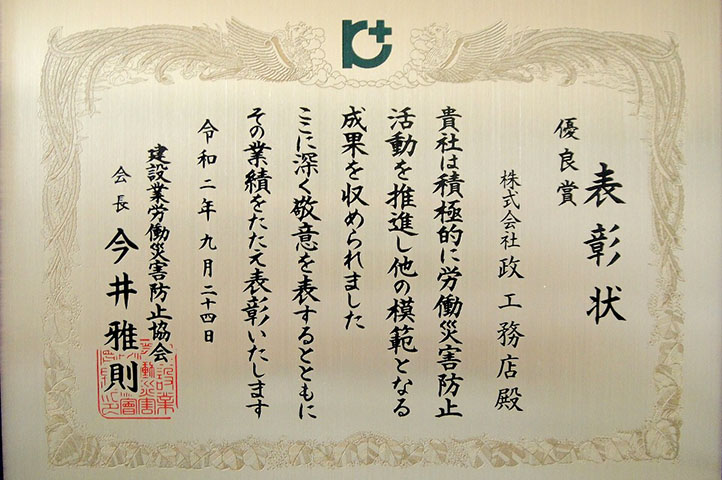 表彰状
優良賞
株式会社 政工務店殿
貴社は積極的に労働災害防止
活動を推進し他の模範となる
成果を収められました
ここに深く敬意を表するとともに
その業績をたたえ表彰いたします
令和二年九月二十四日
建設業労働災害防止協会
会長 今井雅則